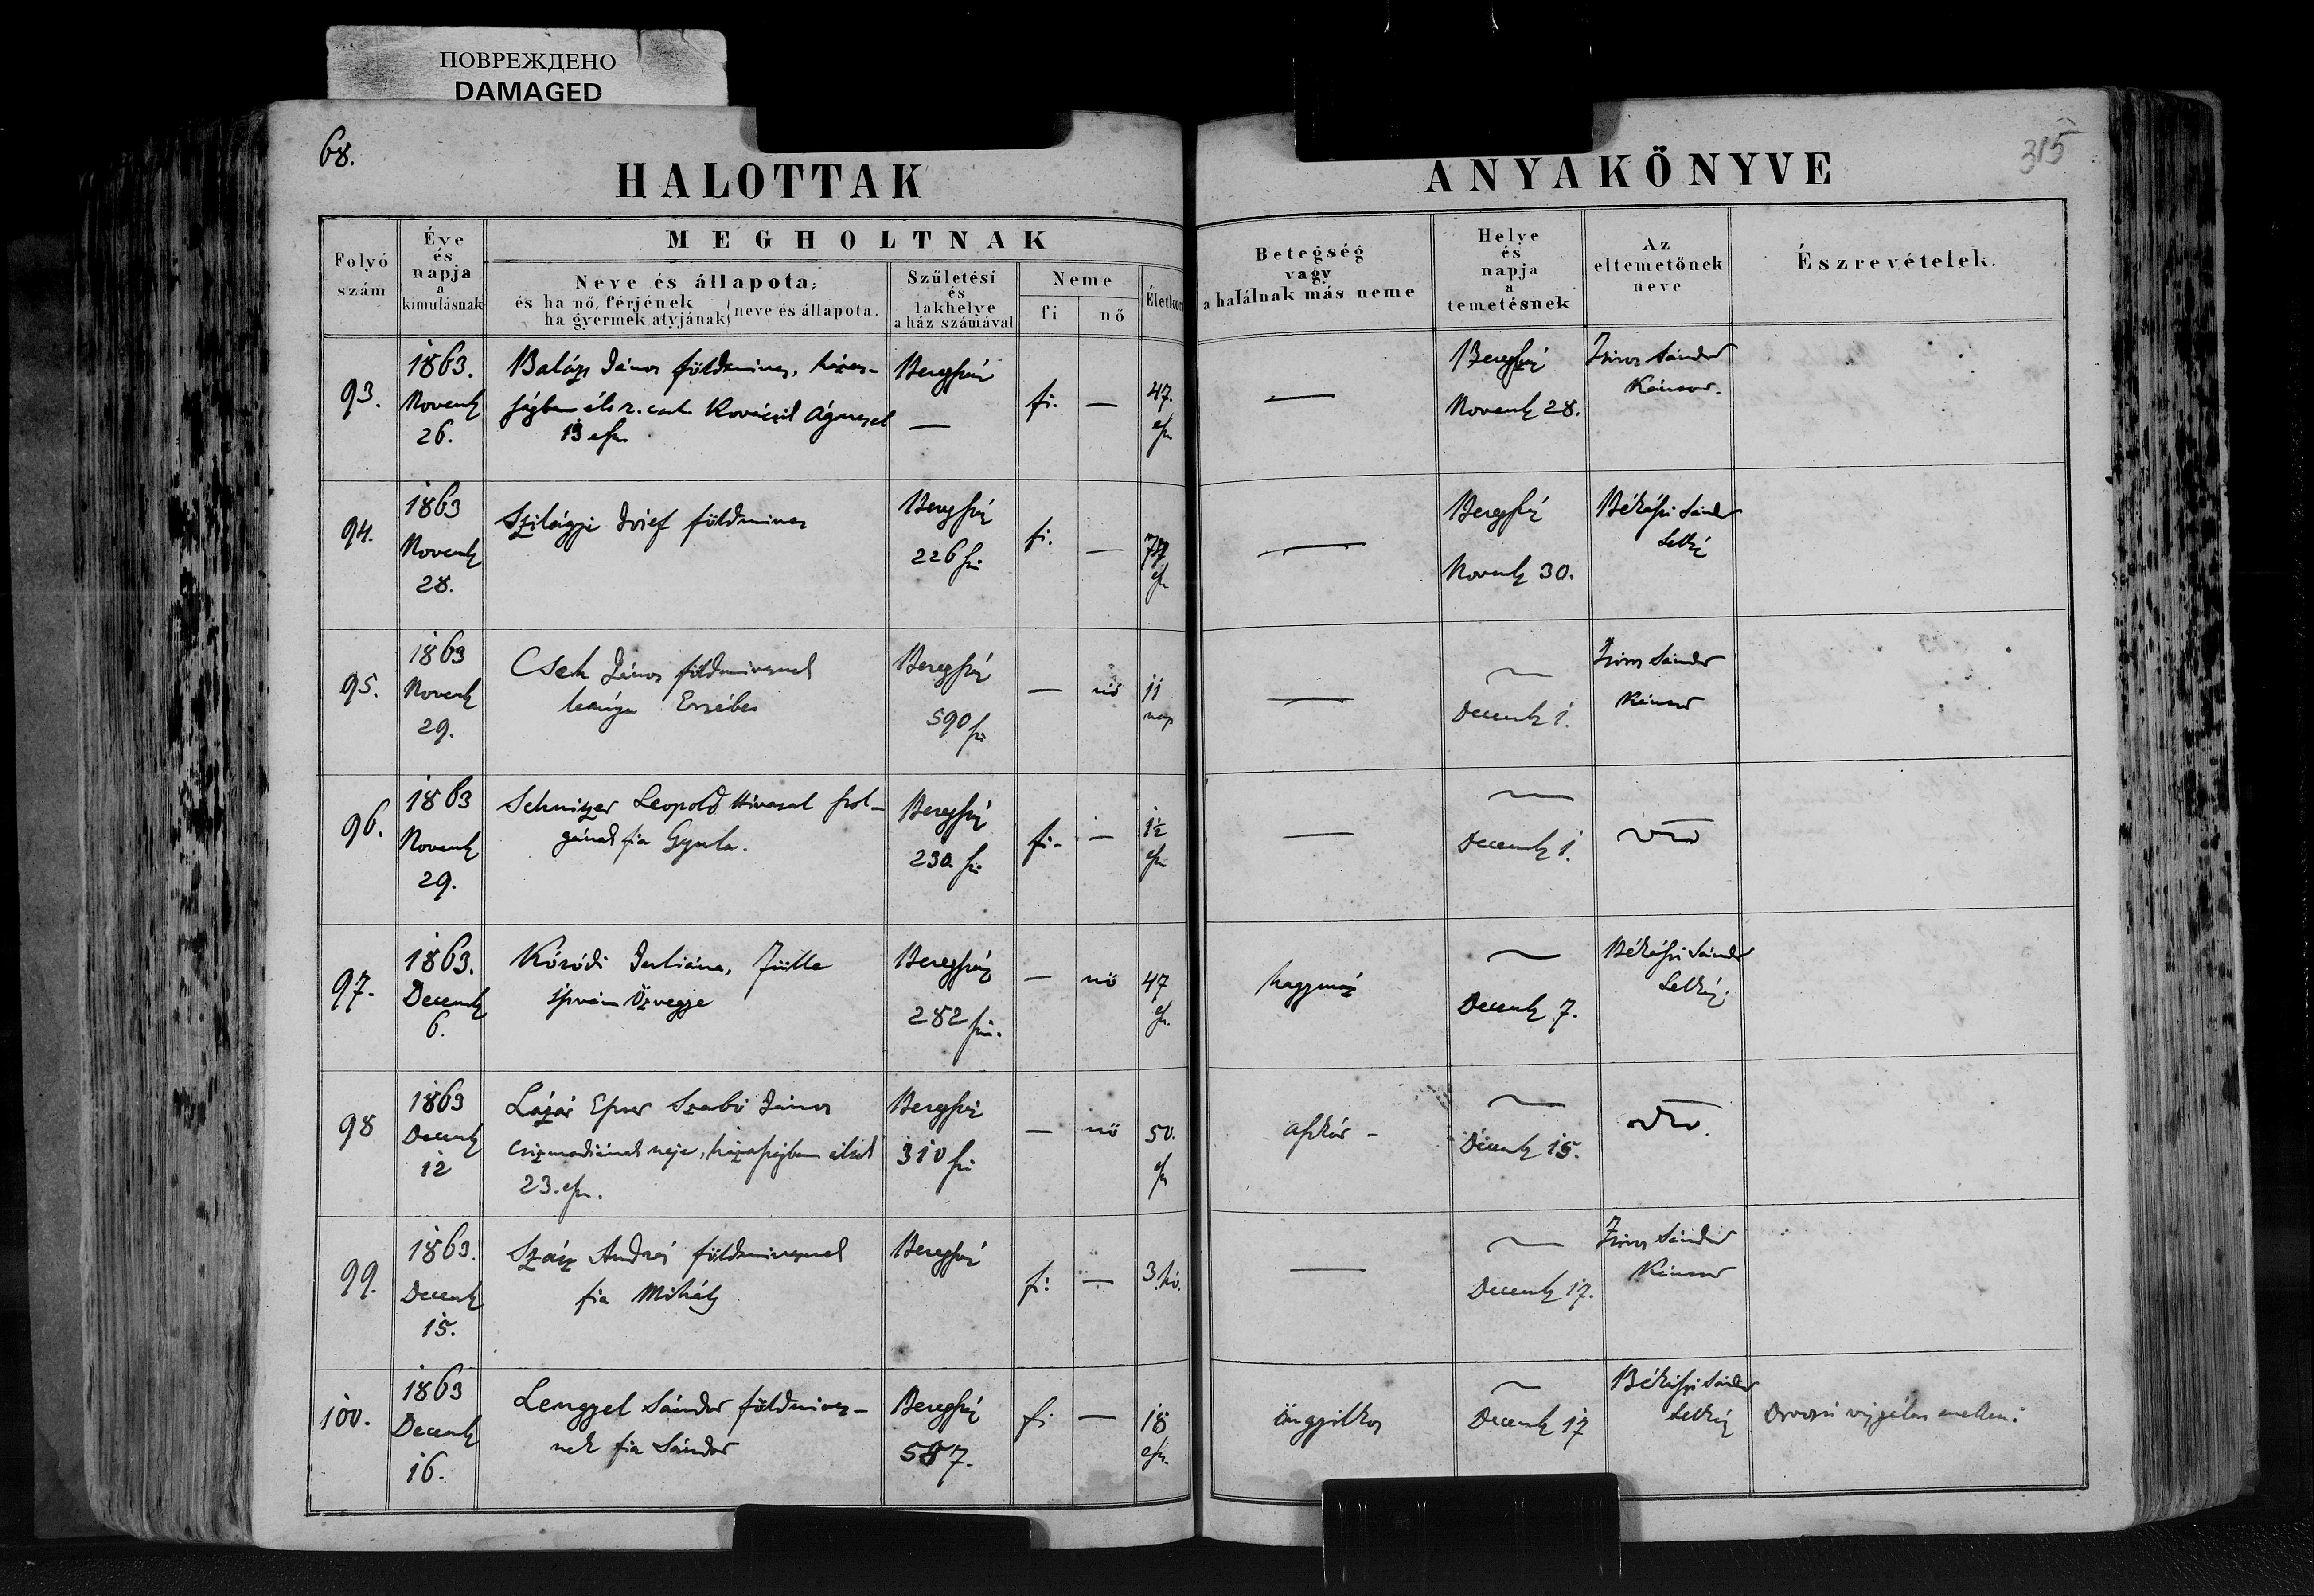 ПОВРЕЖДЕНО
DAMAGED
68.
315
HALOTTAK
ANYAKÖNYVE
Folyó szám
Éve és napja a kimulásnak
MEGHOLTNAK
Neve és állapota;
és ha nő, férjének
ha gyermek, atyjának
neve és állapota.
Születési és lakhelye a ház számával
Neme
fi
nő
Életkor
Betegség
vagy
a halálnak más neme
Helye és napja a temetésnek
Az eltemetőnek neve
Észrevételek.
93.
1863.
Novemb
26.
Balázs János földmives, házas-
ságban élt r. cath. Kovácsil Ágnessel
13 esz.
Beregszáz
—
fi.
—
47.
esz
—
Beregszáz
Novemb 28.
Sándor
Kántor.
94.
1863
Novemb
28.
Szilágyi Josef földmives
Beregszáz
226 sz
fi.
—
esz
—
Beregszáz
Novemb 30.
Békássi Sándor
Lelkész
95.
1863
Novemb
29.
Cseh János földmivesnek
leánya Erzsébet
Beregszáz
590 sz
—
nő
11
nap
—
Decemb 1.
Sándor
Kántor
96.
1863
Novemb
29.
Schnitzer Leopold hivatal szol-
gának fia Gyula.
Beregszáz
230. sz
fi.
—
1½
esz
—
Decemb 1.
97.
1863.
Decemb
6.
Kóródi Juliána,
István Özvegye
Beregszáz
282 sz.
—
nő
47
esz.
hagymáz
Decemb 7.
Békássi Sándor
Lelkész
98
1863
Decemb
12
Lázár Eszter Szabó János
csizmadiának neje, házasságban élt
23. esz.
Beregszáz
310 sz
—
nő
50.
esz
aszkór
Decemb 15.
99.
1863.
Decemb
15.
Szász András földmivesnek
fia Mihály
Beregszáz
fi.
—
3 hó.
—
Decemb 17.
Sándor
Kántor
100.
1863
Decemb
16.
Lengyel Sándor földmives-
nek fia Sándor
Beregszáz
587.
fi
—
18
esz.
öngyilkos
Decemb 17
Békássi Sándor
Lelkész
Orvosi vizsgálat mellett.